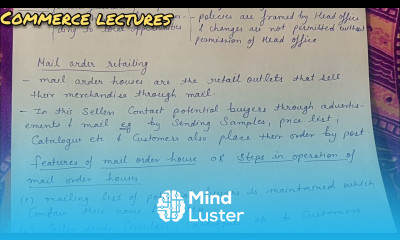 COMMERCE LECTURES
- policies are framed by Head office
& changes are not permitted without
permission of Head office
Mail order retailing
- mail order houses are the retail outlets that sell
their merchandise through mail.
- In this Sellers Contact potential buyers through advertis-
ements & mail eg by Sending Samples, price list,
Catalogue etc & Customers also place their order by post
features of mail order house or Steps in operation of
mail order houses
(1) mailing list of is maintained which
Contain their name
Mind
Luster
to Customers